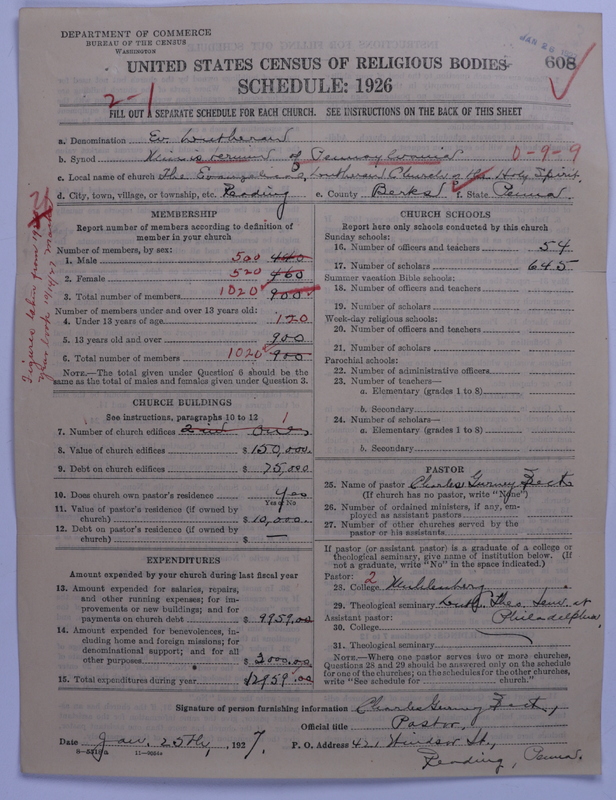 DEPARTMENT OF COMMERCE
BUREAU OF THE CENSUS
WASHINGTON
JAN 28
UNITED STATES CENSUS OF RELIGIOUS BODIES
608
SCHEDULE: 1926
2-1
FILL OUT A SEPARATE SCHEDULE FOR EACH CHURCH. SEE INSTRUCTIONS ON THE BACK OF THIS SHEET
a. Denomination Ev. Lutheran
b. Synod Ministerium of Pennsylvania 0-9-9
c. Local name of church The Evangelical Lutheran Church of the Holy Spirit
d. City, town, village, or township, etc. Reading e. County Berks f. State Penna.
MEMBERSHIP
Report number of members according to definition of member in your church
Number of members, by sex:
1. Male 500 440
2. Female 520 460
3. Total number of members 1020 900
Number of members under and over 13 years old:
4. Under 13 years of age 120
5. 13 years old and over 900
6. Total number of members 1020 900
NOTE.—The total given under Question 6 should be the same as the total of males and females given under Question 3.
Figures taken from 19
year book
CHURCH BUILDINGS
See instructions, paragraphs 10 to 12
7. Number of church edifices one 1
8. Value of church edifices $150,000.
9. Debt on church edifices $75,000
10. Does church own pastor's residence Yes
Yes or No
11. Value of pastor's residence (if owned by church) $10,000.
12. Debt on pastor's residence (if owned by church) $ —
EXPENDITURES
Amount expended by your church during last fiscal year
13. Amount expended for salaries, repairs, and other running expenses; for improvements or new buildings; and for payments on church debt $9959.00
14. Amount expended for benevolences, including home and foreign missions; for denominational support; and for all other purposes $3000.00
15. Total expenditures during year $12959.00
CHURCH SCHOOLS
Report here only schools conducted by this church
Sunday schools:
16. Number of officers and teachers 54
17. Number of scholars 645
Summer vacation Bible schools:
18. Number of officers and teachers
19. Number of scholars
Week-day religious schools:
20. Number of officers and teachers
21. Number of scholars
Parochial schools:
22. Number of administrative officers
23. Number of teachers—
a. Elementary (grades 1 to 8)
b. Secondary
24. Number of scholars—
a. Elementary (grades 1 to 8)
b. Secondary
PASTOR
25. Name of pastor Charles Gurney Fect
(If church has no pastor, write "None")
26. Number of ordained ministers, if any, employed as assistant pastors
27. Number of other churches served by the pastor or his assistants
If pastor (or assistant pastor) is a graduate of a college or theological seminary, give name of institution below. (If not a graduate, write "No" in the space indicated.)
Pastor: 2
28. College Muhlenberg
29. Theological seminary Luth. Theo. Sem. at
Assistant pastor: Philadelphia
30. College
31. Theological seminary
NOTE.—Where one pastor serves two or more churches, Questions 28 and 29 should be answered only on the schedule for one of the churches; on the schedules for the other churches, write "See schedule for church."
Signature of person furnishing information Charles Gurney Fect,
Official title Pastor,
Date Jan. 25th, 1927. P. O. Address 421 Windsor St.,
Reading, Penna.